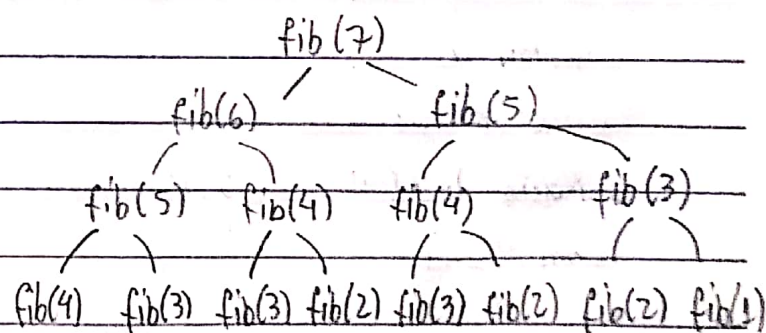 fib(7)
fib(6) fib(5)
fib(5) fib(4) fib(4) fib(3)
fib(4) fib(3) fib(3) fib(2) fib(3) fib(2) fib(2) fib(1)